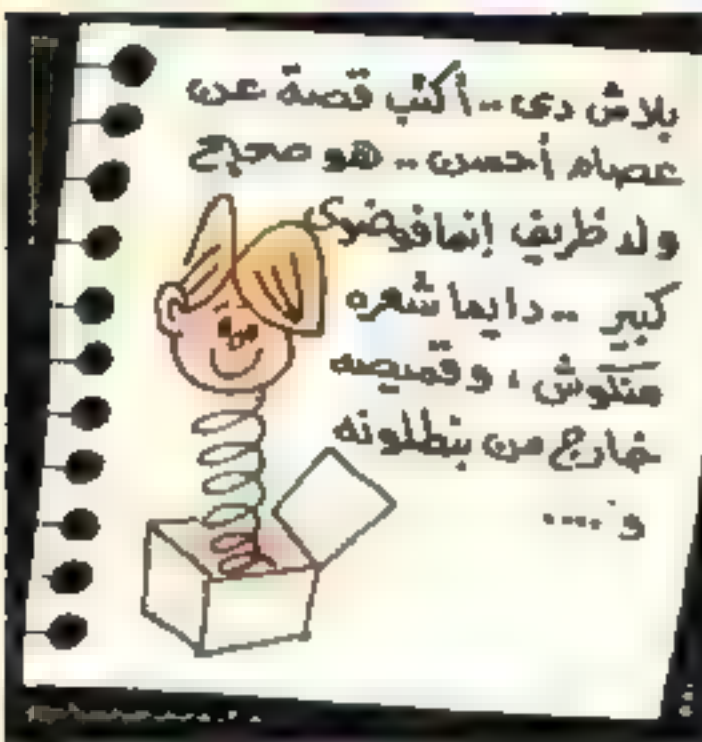 بلاش دى .. أكتب قصة عن
عصام أحسن .. هو صحيح
ولد ظريف إنما فوضوى
كبير .. دايما شعره
منكوش ، وقميصه
خارج من بنطلونه
و ....